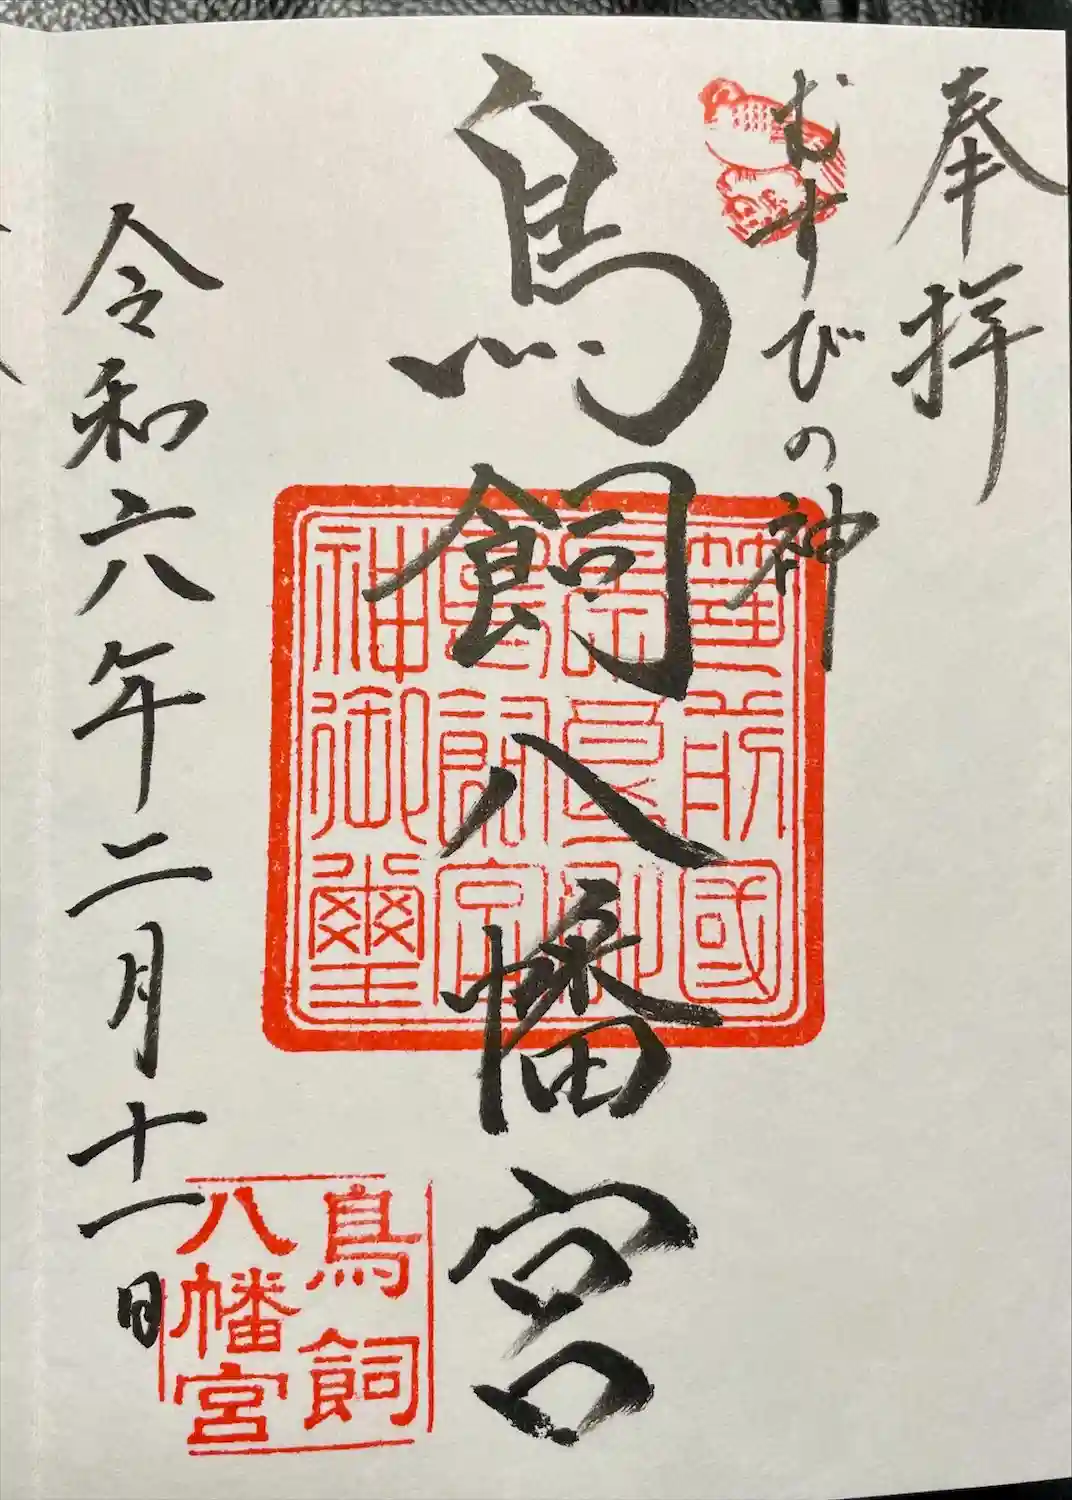 奉拝
むすびの神
鳥飼八幡宮
令和六年二月十一日
筑前國
早良郡
鳥飼宮
神御璽
鳥飼
八幡宮